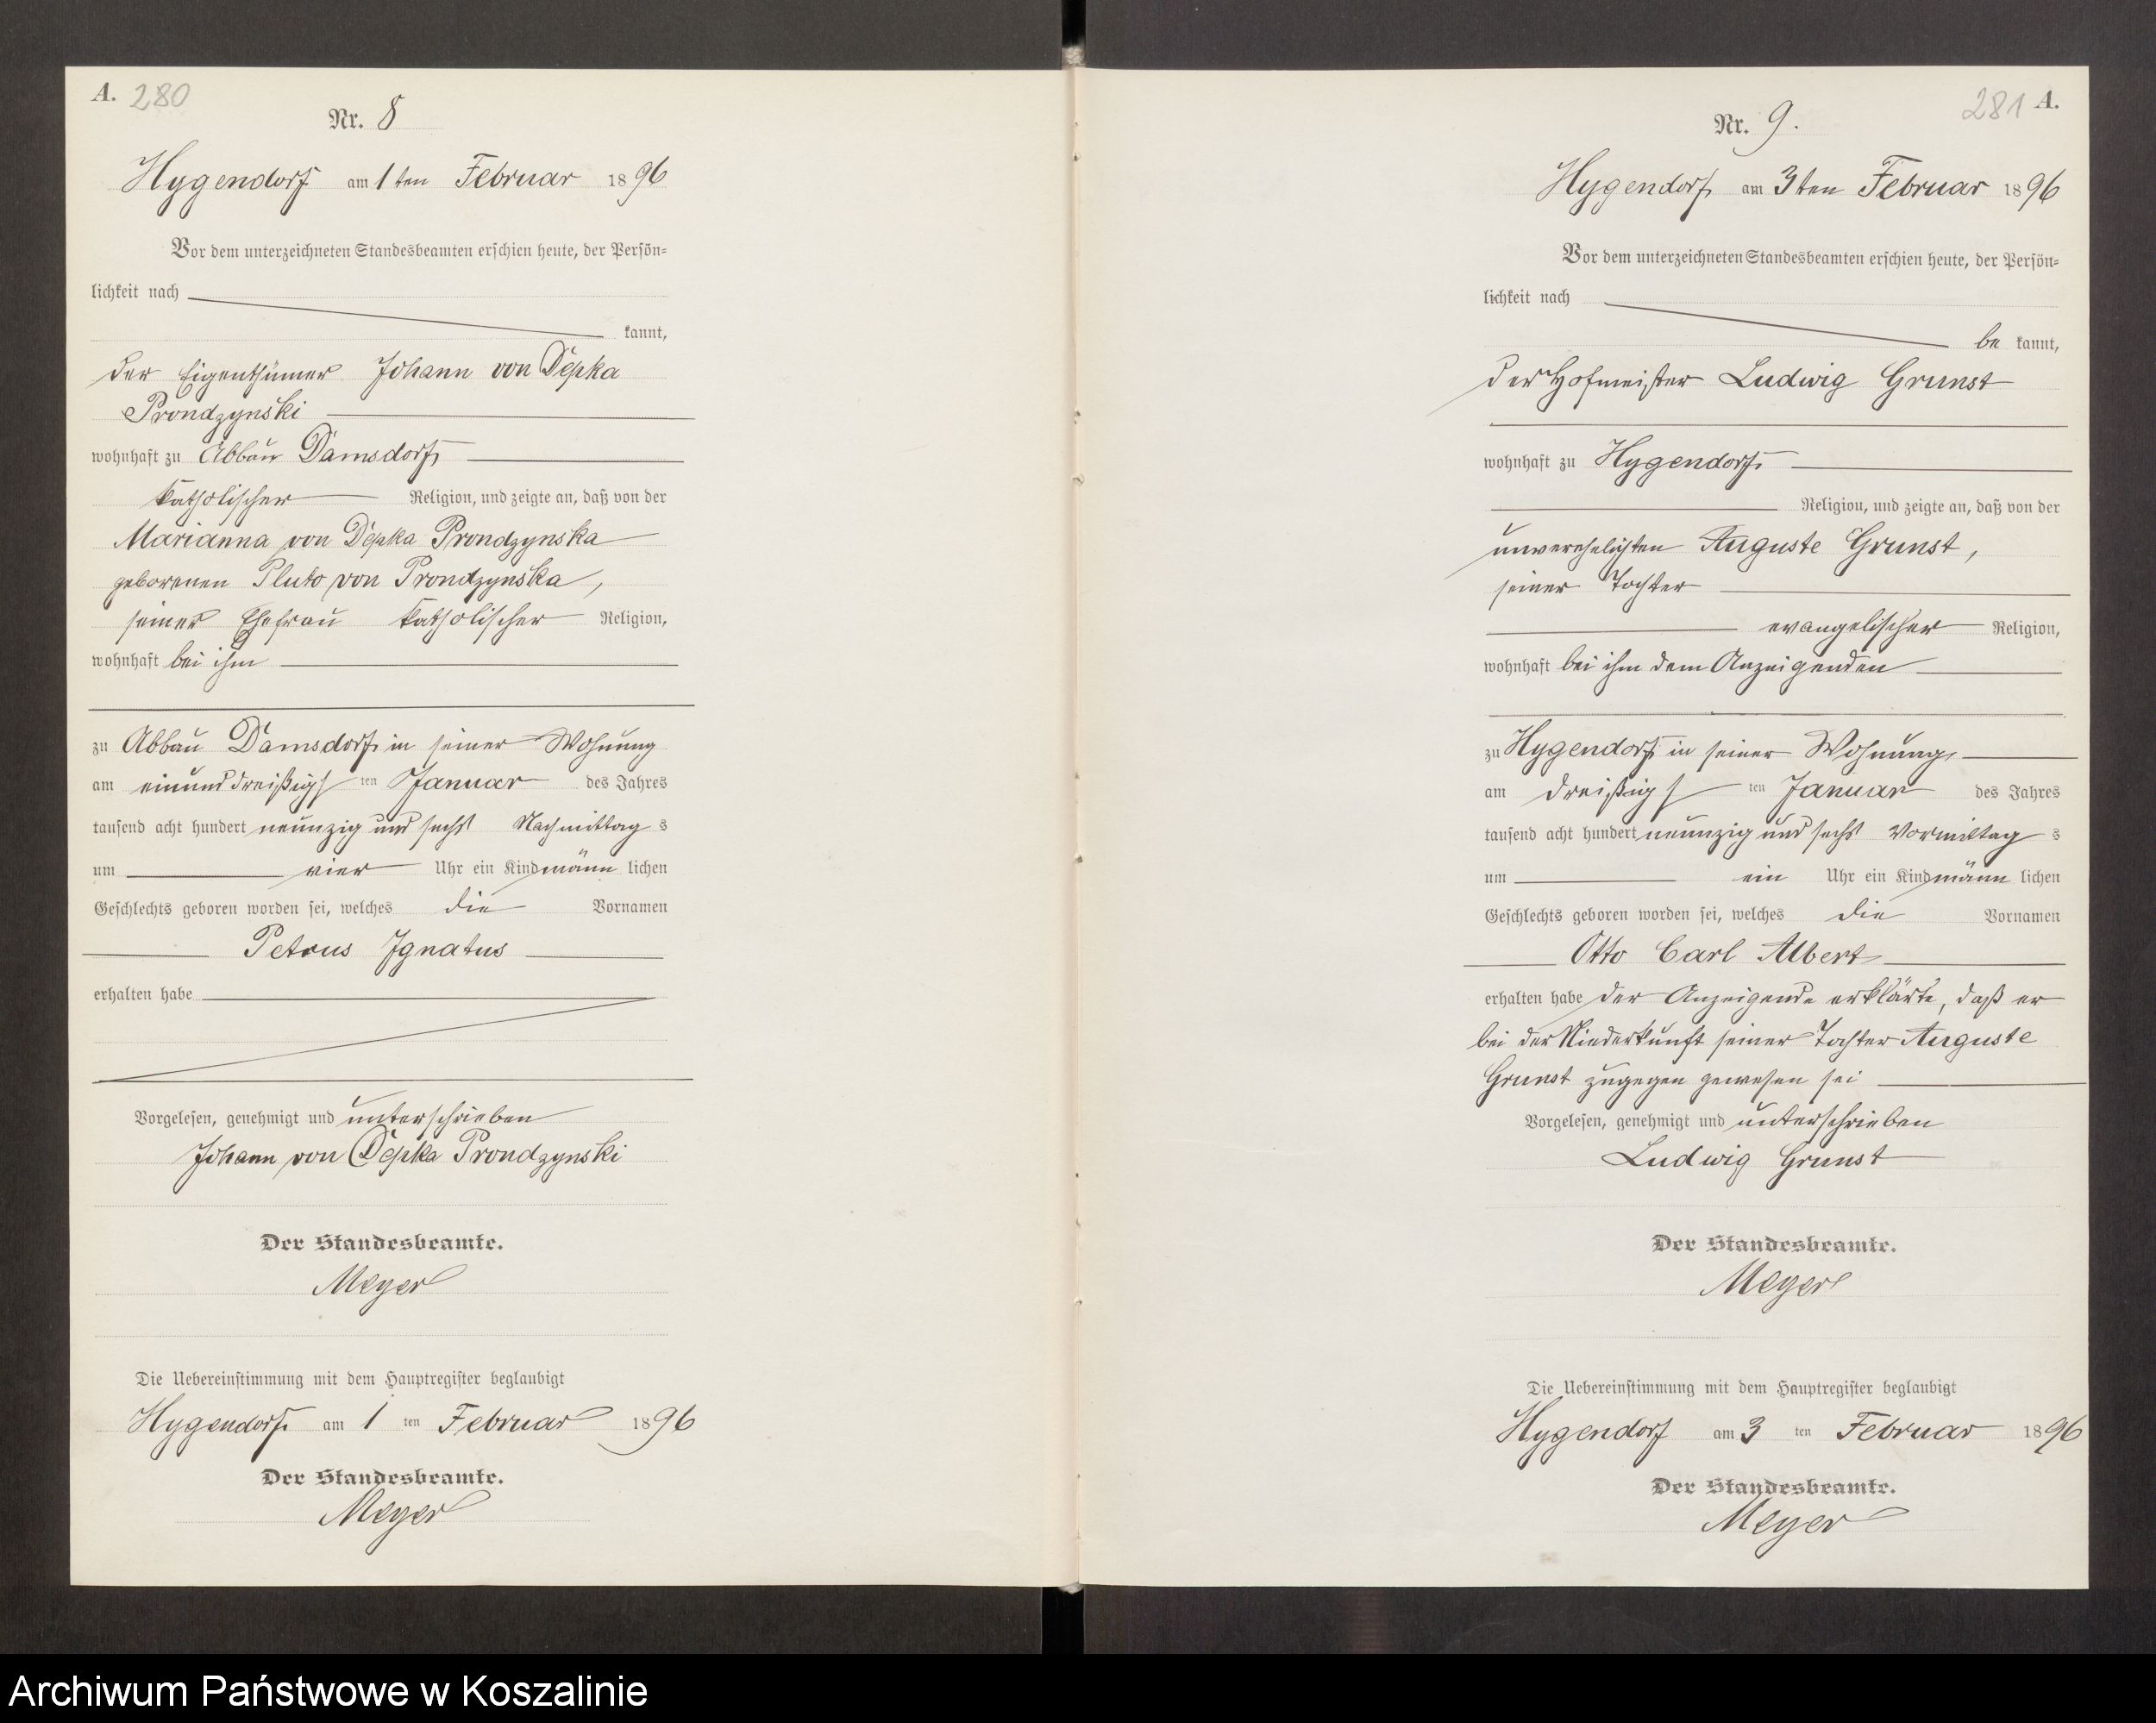 A. 280
Nr. 8
Hygendorf am 1ten Februar 1896
Vor dem unterzeichneten Standesbeamten erschien heute, der Persön=
lichkeit nach
kannt,
der Eigenthümer Johann von Depka
Prondzynski
wohnhaft zu Abbau Damsdorf,
katholischer Religion, und zeigte an, daß von der
Marianna von Depka Prondzynska
geborenen Pluto von Prondzynska,
seiner Ehefrau katholischer Religion,
wohnhaft bei ihm
zu Abbau Damsdorf in seiner Wohnung
am einunddreißigsten Januar des Jahres
tausend acht hundert neunzig und sechs Nachmittags
um vier Uhr ein Kind männlichen
Geschlechts geboren worden sei, welches die Vornamen
Petrus Ignatus
erhalten habe
Vorgelesen, genehmigt und unterschrieben
Johann von Depka Prondzynski
Der Standesbeamte.
Meyer
Die Uebereinstimmung mit dem Hauptregister beglaubigt
Hygendorf am 1 ten Februar 1896
Der Standesbeamte.
Meyer
281 A.
Nr. 9.
Hygendorf am 3ten Februar 1896
Vor dem unterzeichneten Standesbeamten erschien heute, der Persön=
lichkeit nach
bekannt,
der Hofmeister Ludwig Grunst
wohnhaft zu Hygendorf
Religion, und zeigte an, daß von der
unverehelichten Auguste Grunst,
seiner Tochter
evangelischer Religion,
wohnhaft bei ihm dem Anzeigenden
zu Hygendorf in seiner Wohnung,
am dreißigsten Januar des Jahres
tausend acht hundert neunzig und sechs Vormittags
um ein Uhr ein Kind männlichen
Geschlechts geboren worden sei, welches die Vornamen
Otto Carl Albert
erhalten habe der Anzeigende erklärte, daß er
bei der Niederkunft seiner Tochter Auguste
Grunst zugegen gewesen sei
Vorgelesen, genehmigt und unterschrieben
Ludwig Grunst
Der Standesbeamte.
Meyer
Die Uebereinstimmung mit dem Hauptregister beglaubigt
Hygendorf am 3 ten Februar 1896
Der Standesbeamte.
Meyer
Archiwum Państwowe w Koszalinie